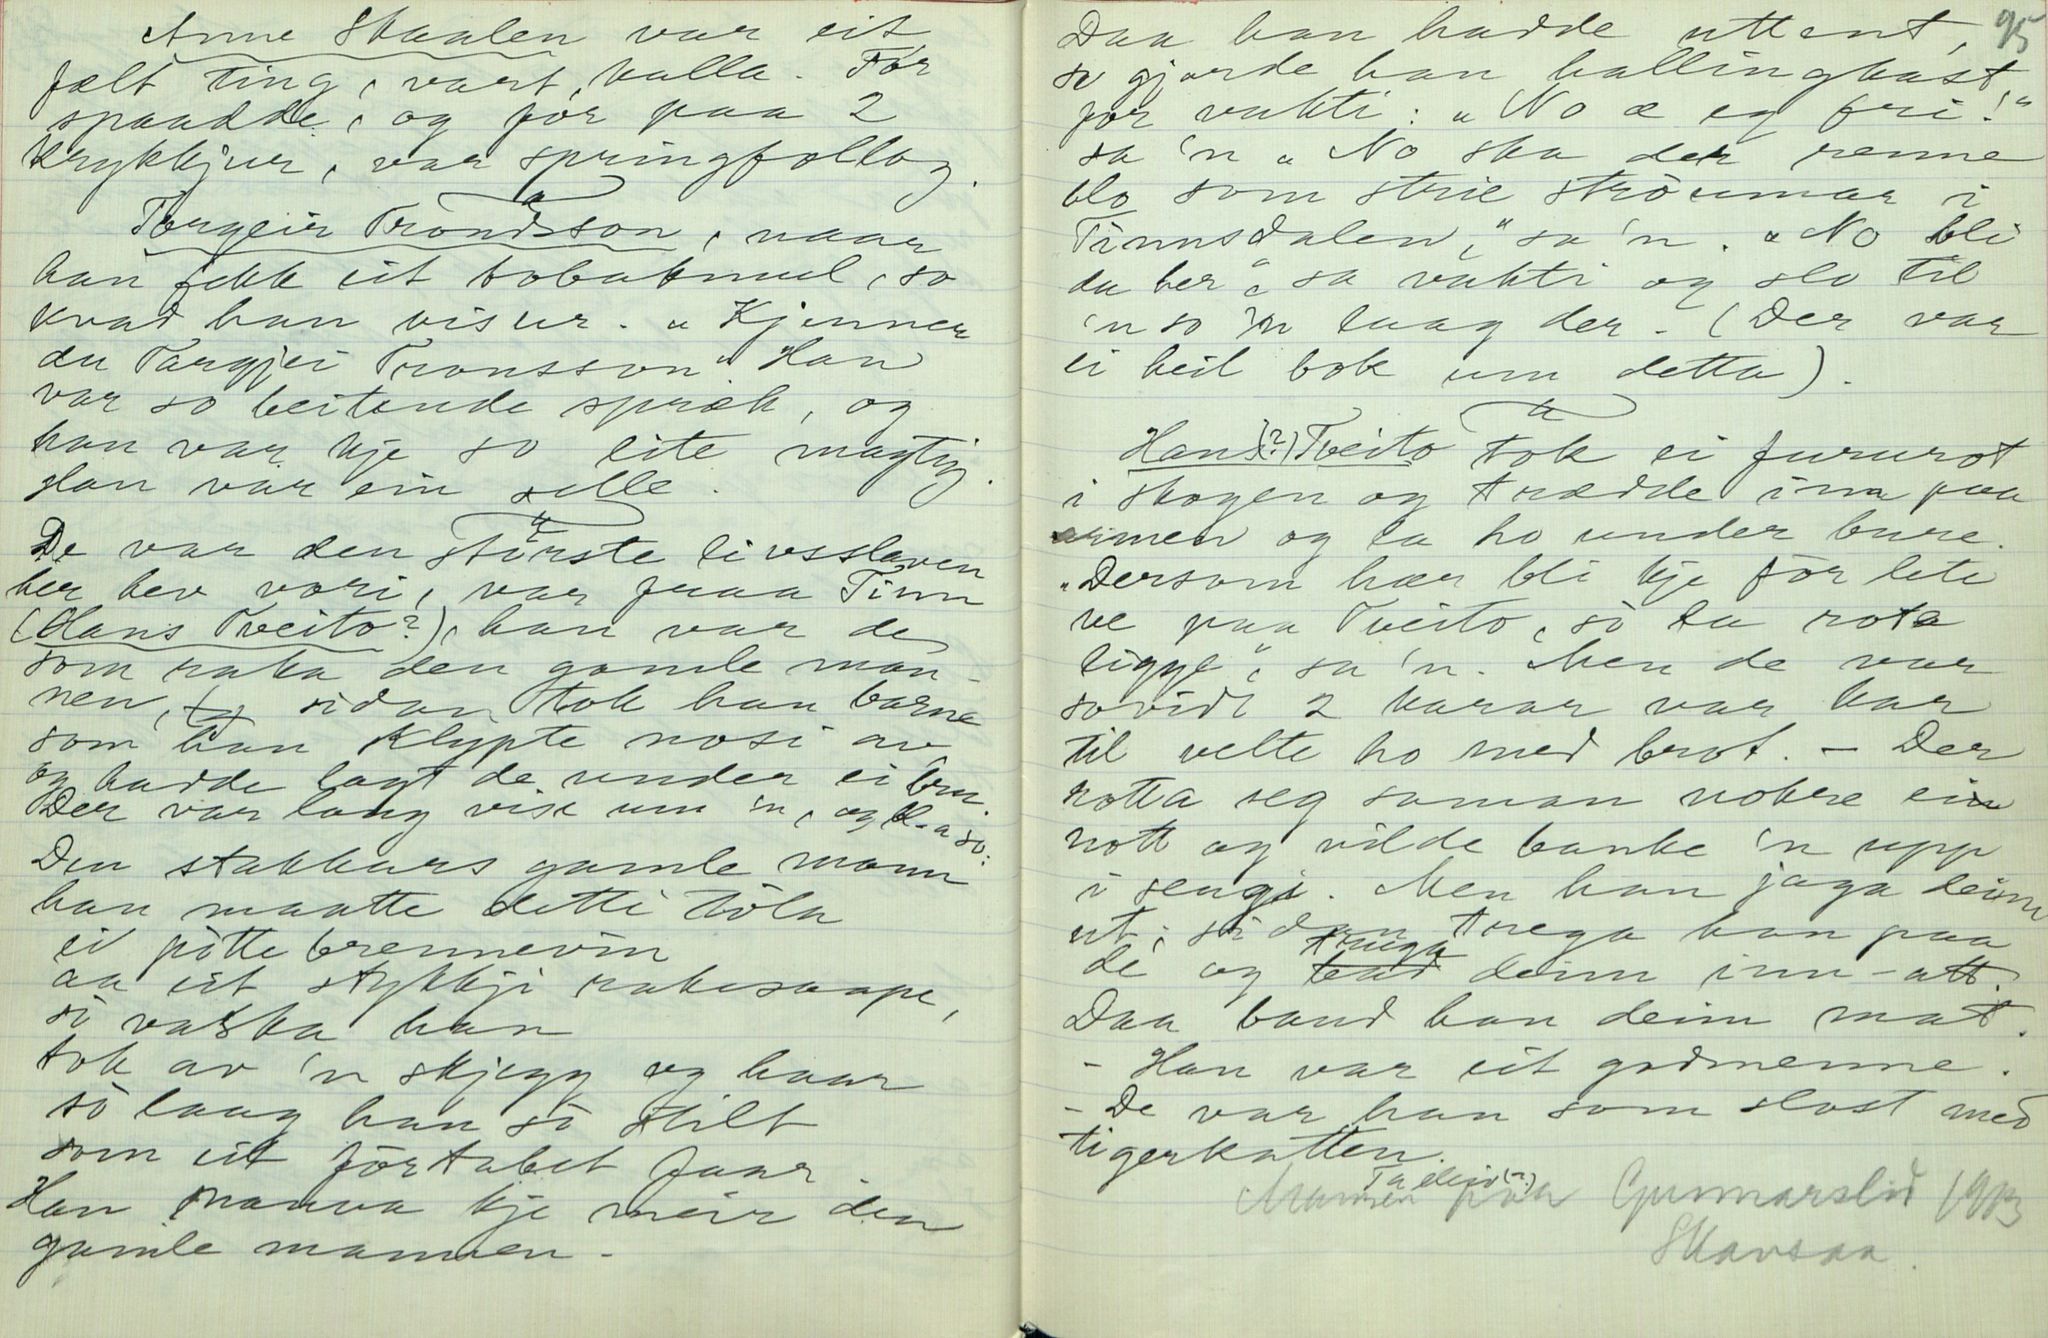 Anne Skaalen var eit
fælt ting, vart kalla. For
spaadde, og for paa 2
krykkjur, var springfollog.
Torgeir Trondsson, naar
han fekk eit tobakmul, so
kvad han visur. "Kjenner
du Targjei Tronsson" Han
var so beitende spræk, og
han var kje so lite magtig.
Han var ein selle.
De var den störste livsslaven
her hev vori, var fraa Tinn
(Hans Tveito?), han var de
som raka den gamle man-
nen, og sidan tok han barne
som han klypte nosi av
og hadde lagt de under ei bru.
Der var lang vise um 'n, og d. a so:
Den stakkars gamle mann
han maatte detti tola
ei pötte brennevin
aa eit stykkji rakesaape,
so vaska han
tok av 'n skjegg og haar
so laag han so stilt
som eit fortabet faar.
Han manna kje meir den
gamle mannen -
95
Daa han hadde uttent,
so gjorde han hallingkast
for vakti: "No æ eg fri!"
sa 'n "No ska der renne
blo som strie ströumar i
Tinnsdalen," sa 'n. "No bli
du her", sa vakti og slo til
'n so 'n laag der. (Der var
ei heil bok um detta).
Hans(?) Tveito tok ei fururot
i skogen og trædde inn paa
armen og la ho under bure.
"Dersom hær bli kje for lite
ve paa Tveito, so ta rota
ligge", sa 'n. Men de var
sovidt 2 karar var kar
til velte ho med brot. - Der
rotta seg saman nokre ein
nott og vilde banke 'n upp
i sengi. Men han jaga deim
ut; sidan trega han paa
truga
de og bad deim inn-att.
Daa baud han deim mat.
- Han var eit godmenne.
- De var han som slost med
tigerkatten.
Tadleiv(?)
Mannen paa Gunnarslid 1913
Skavsaa.